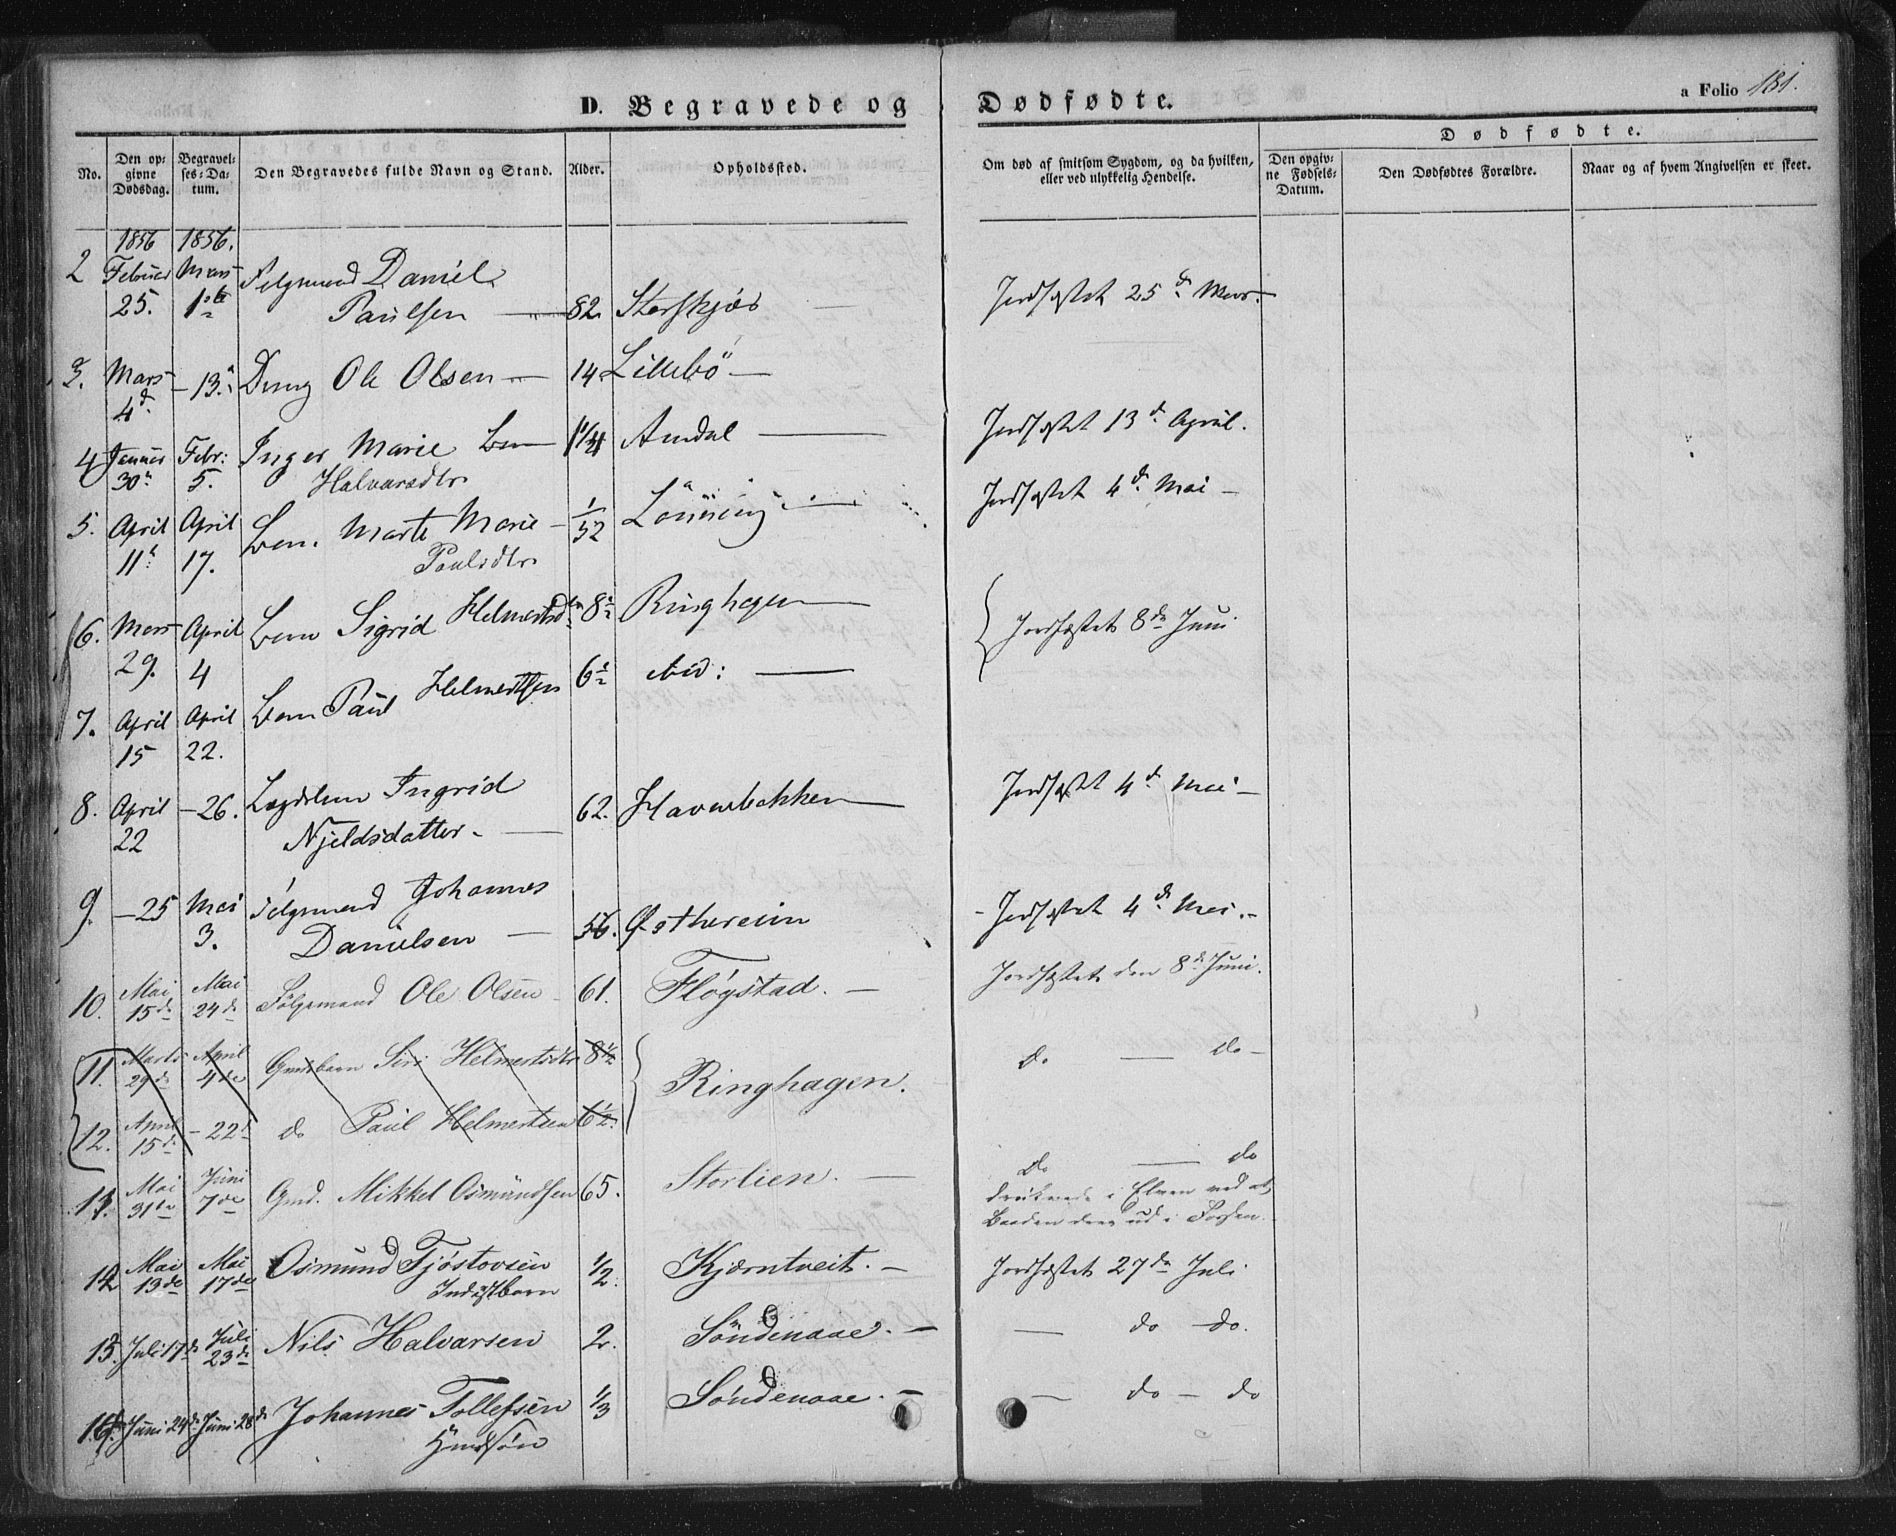 D. Begravede og Dødfødte. a Folio 181.
No. Den opgivne Dødsdag. Begravelses-Datum. Den Begravedes fulde Navn og Stand. Alder. Opholdssted. Om død af smitsom Sygdom, og da hvilken, eller ved ulykkelig Hendelse.
Dødfødte.
Den opgivne Fødsels-Datum. Den Dødfødtes Forældre. Naar og af hvem Angivelsen er skeet.
1856 1856.
2 Februar 25. Mars 1ste Følgemand Daniel
Paulsen 82. Storskjær Jordfæstet 25d Mars
3. Mars 4d. 13d Dreng Ole Olsen 14 Lillebö
4 Januar 30d Febr: 5. Inger Marie Barn
Halvarsdtr 1 1/4 Amdal Jordfæstet 13d April.
5. April 11d April 17. Barn Marte Marie
Paulsdtr 1/52 Lönning Jordfæstet 4d Mai
6. Mars 29. April 4 Barn Sigrid Helmertsdtr 8 1/2 Ringhagen Jordfæstet 8de Juni
7. April 15 April 22. Barn Paul Helmertsen 6 1/2 ibid:
8. April 22 26. Lægdslem Ingrid
Njeldsdatter 62. Haverbekken Jordfæstet 4d Mai
9. 25 Mai 3. Følgemand Johannes
Danielsen 56. Østhereim Jordfæstet 4d Mai.
10. Mai 15de Mai 24de Følgemand Ole Olsen 61. Fløgstad. Jordfæstet den 8d Juni.
11. Marts 29de April 4de Gmdsbarn Siri Helmertsdtr 8 1/2 Ringhagen. do do
12. April 15de 22d do Paul Helmertsen 6 1/2
13. Mai 31te Juni 7de Gmd. Mikkel Osmundsen 65. Storlien. do do
druknede i Elven ved at
Baaden drev ud i Fossen.
14 Mai 13de Mai 17de Osmund Tjöstovsen
Inderstbarn 1/2. Kjærntveit. Jordfæstet 27de Juli
15. Juli 17de Juli 23de Nils Halvarsen 2. Söndenaae. do do.
16. Juni 24de Juni 28de Johannes Tollefsen
Gmdsön 1/3 Söndenaae. do do